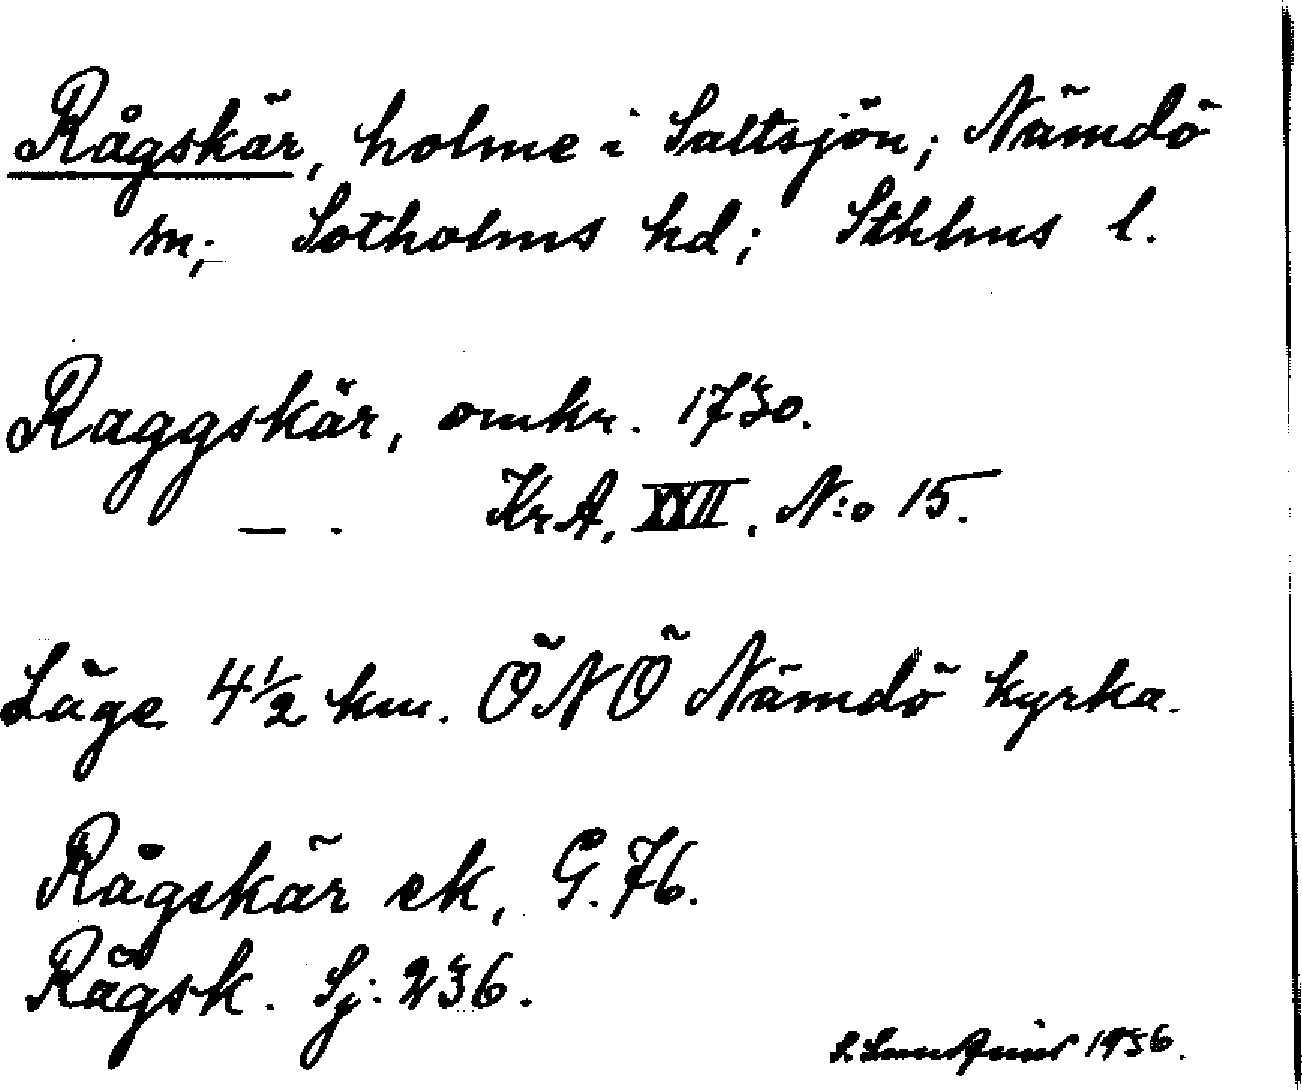 Rågskär, holme i Saltsjön; Nämdö
sn; Sotholms hd; Sthlms l.
Raggskär, omkr. 1730.
— . KrA, XXII. N:o 15.
Läge 4½ km. ÖNÖ Nämdö kyrka.
Rågskär ek, G. 76.
Rågsk. Sj: 236.
1936.